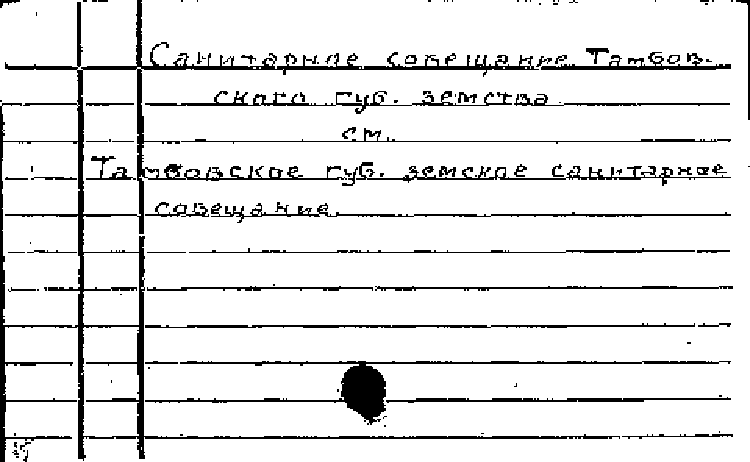 Санитарное совещание Тамбов-
ского губ. земства
см.
Тамбовское губ. земское санитарное
совещание.